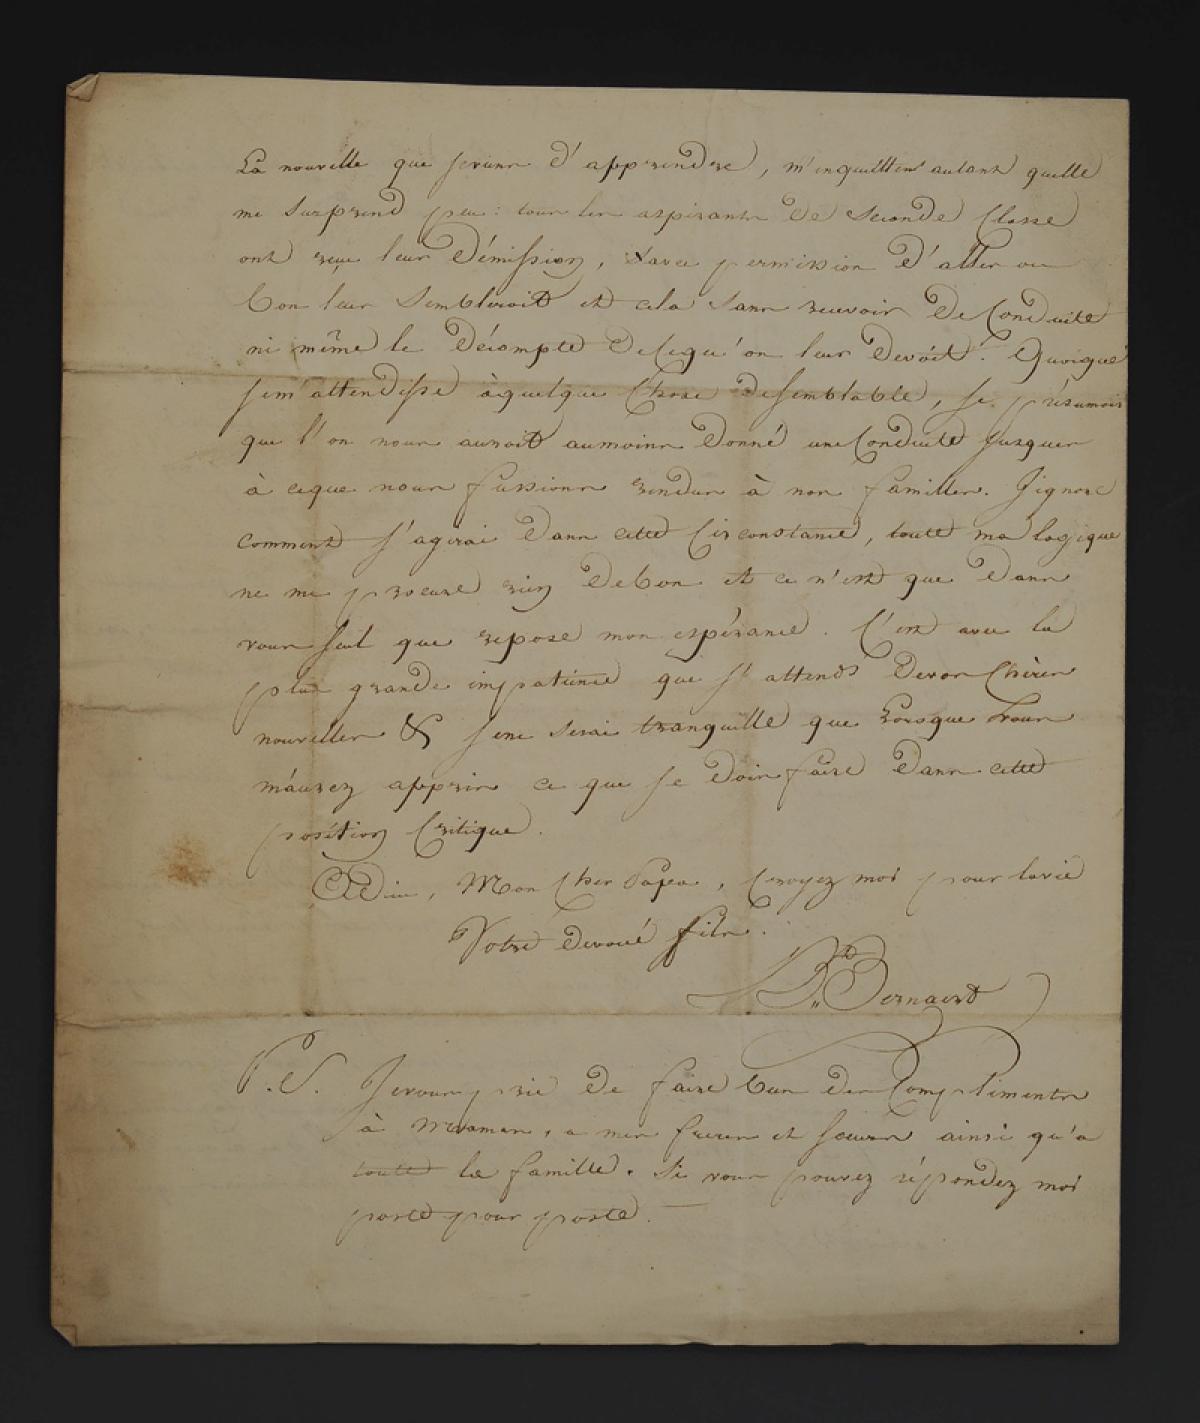 La nouvelle que je viens d'apprendre, m'inquiette autant quelle
me surprend peu : tous les aspirants de seconde Classe
ont reçu leur démission, & avec permission d'aller ou
bon leur sembleroit et cela sans recevoir de Conduite
ni même le décompte de cequ'on leur devoit. Quoique
je m'attendisse àquelque Chose desemblable, je présumois
que l'on nous auroit aumoins donné une Conduite jusques
à ceque nous fussions rendus à nos familles. J'ignore
comment j'agirai dans cette Circonstance, toute ma logique
ne me procure rien debon et ce n'est que dans
vous seul que repose mon espérance. C'est avec la
plus grande impatience que j'attends devos Chères
nouvelles & je ne serai tranquille que lorsque vous
m'aurez appris ce que je dois faire dans cette
position Critique.
Adieu, Mon Cher Papa, Croyez moi pour lavie
Votre devoué fils.
B. Bernaert
P.S. Jevous prie de faire bien des Compliments
à Maman, a mes freres et soeurs ainsi qu'a
toute la famille. Si vous pouvez répondez moi
poste pour poste. —